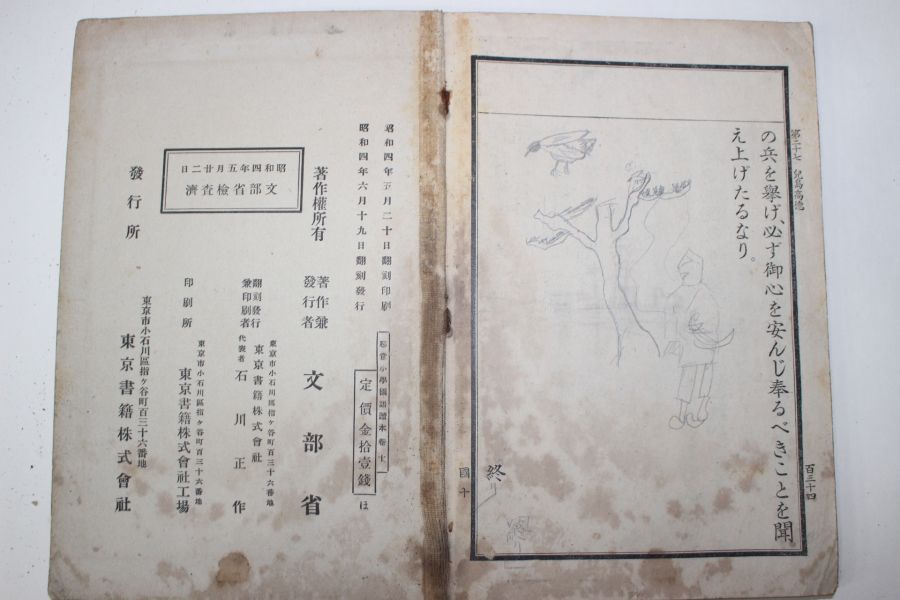 第二十七 兒島高德
の兵を擧げ、必ず御心を安んじ奉るべきことを聞
え上げたるなり。
百三十四
終り
終り
國十
昭和四年五月二十日翻刻印刷
昭和四年六月十九日翻刻發行
尋常小學國語讀本卷十
定價金拾壹錢
ほ
著作權所有
著作兼
發行者
文部省
東京市小石川區指ヶ谷町百三十六番地
翻刻發行
兼印刷者
東京書籍株式會社
代表者
石川正作
東京市小石川區指ヶ谷町百三十六番地
印刷所
東京書籍株式會社工場
昭和四年五月廿二日
文部省檢査濟
發行所
東京市小石川區指ヶ谷町百三十六番地
東京書籍株式會社